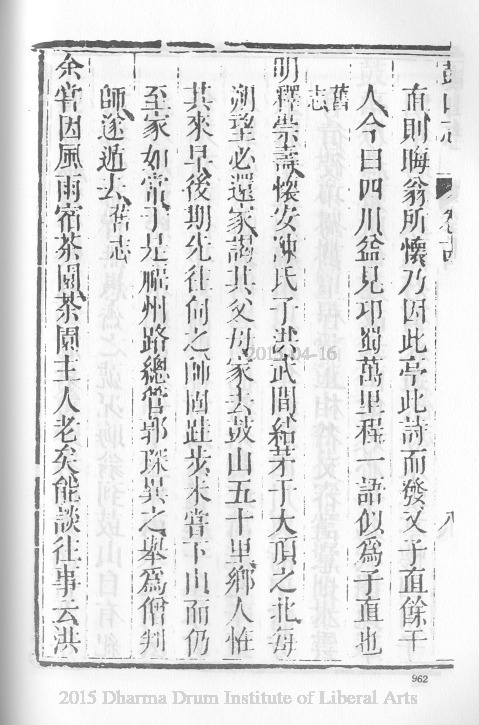 直則晦翁所懷乃因此亭此詩而發又子直餘干
人今日四川益見卭蜀萬里程一語似爲子直也
舊志
明釋崇壽懷安陳氏子洪武間結茅于大頂之北每
朔望必還家謁其父母家去鼓山五十里鄉人恠
其來早後期先往伺之師固跬步未嘗下山而仍
至家如常于是福州路總管郭琛異之舉爲僧判
師遂遁去舊志
余嘗因風雨宿茶園茶園主人老矣能談往事云洪
八
962
2015-04-16
2015 Dharma Drum Institute of Liberal Arts